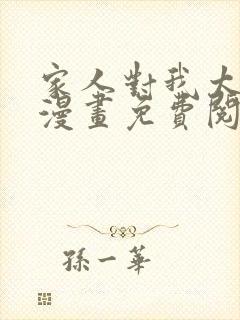 家人對我大
漫畫免費閱
孫一華